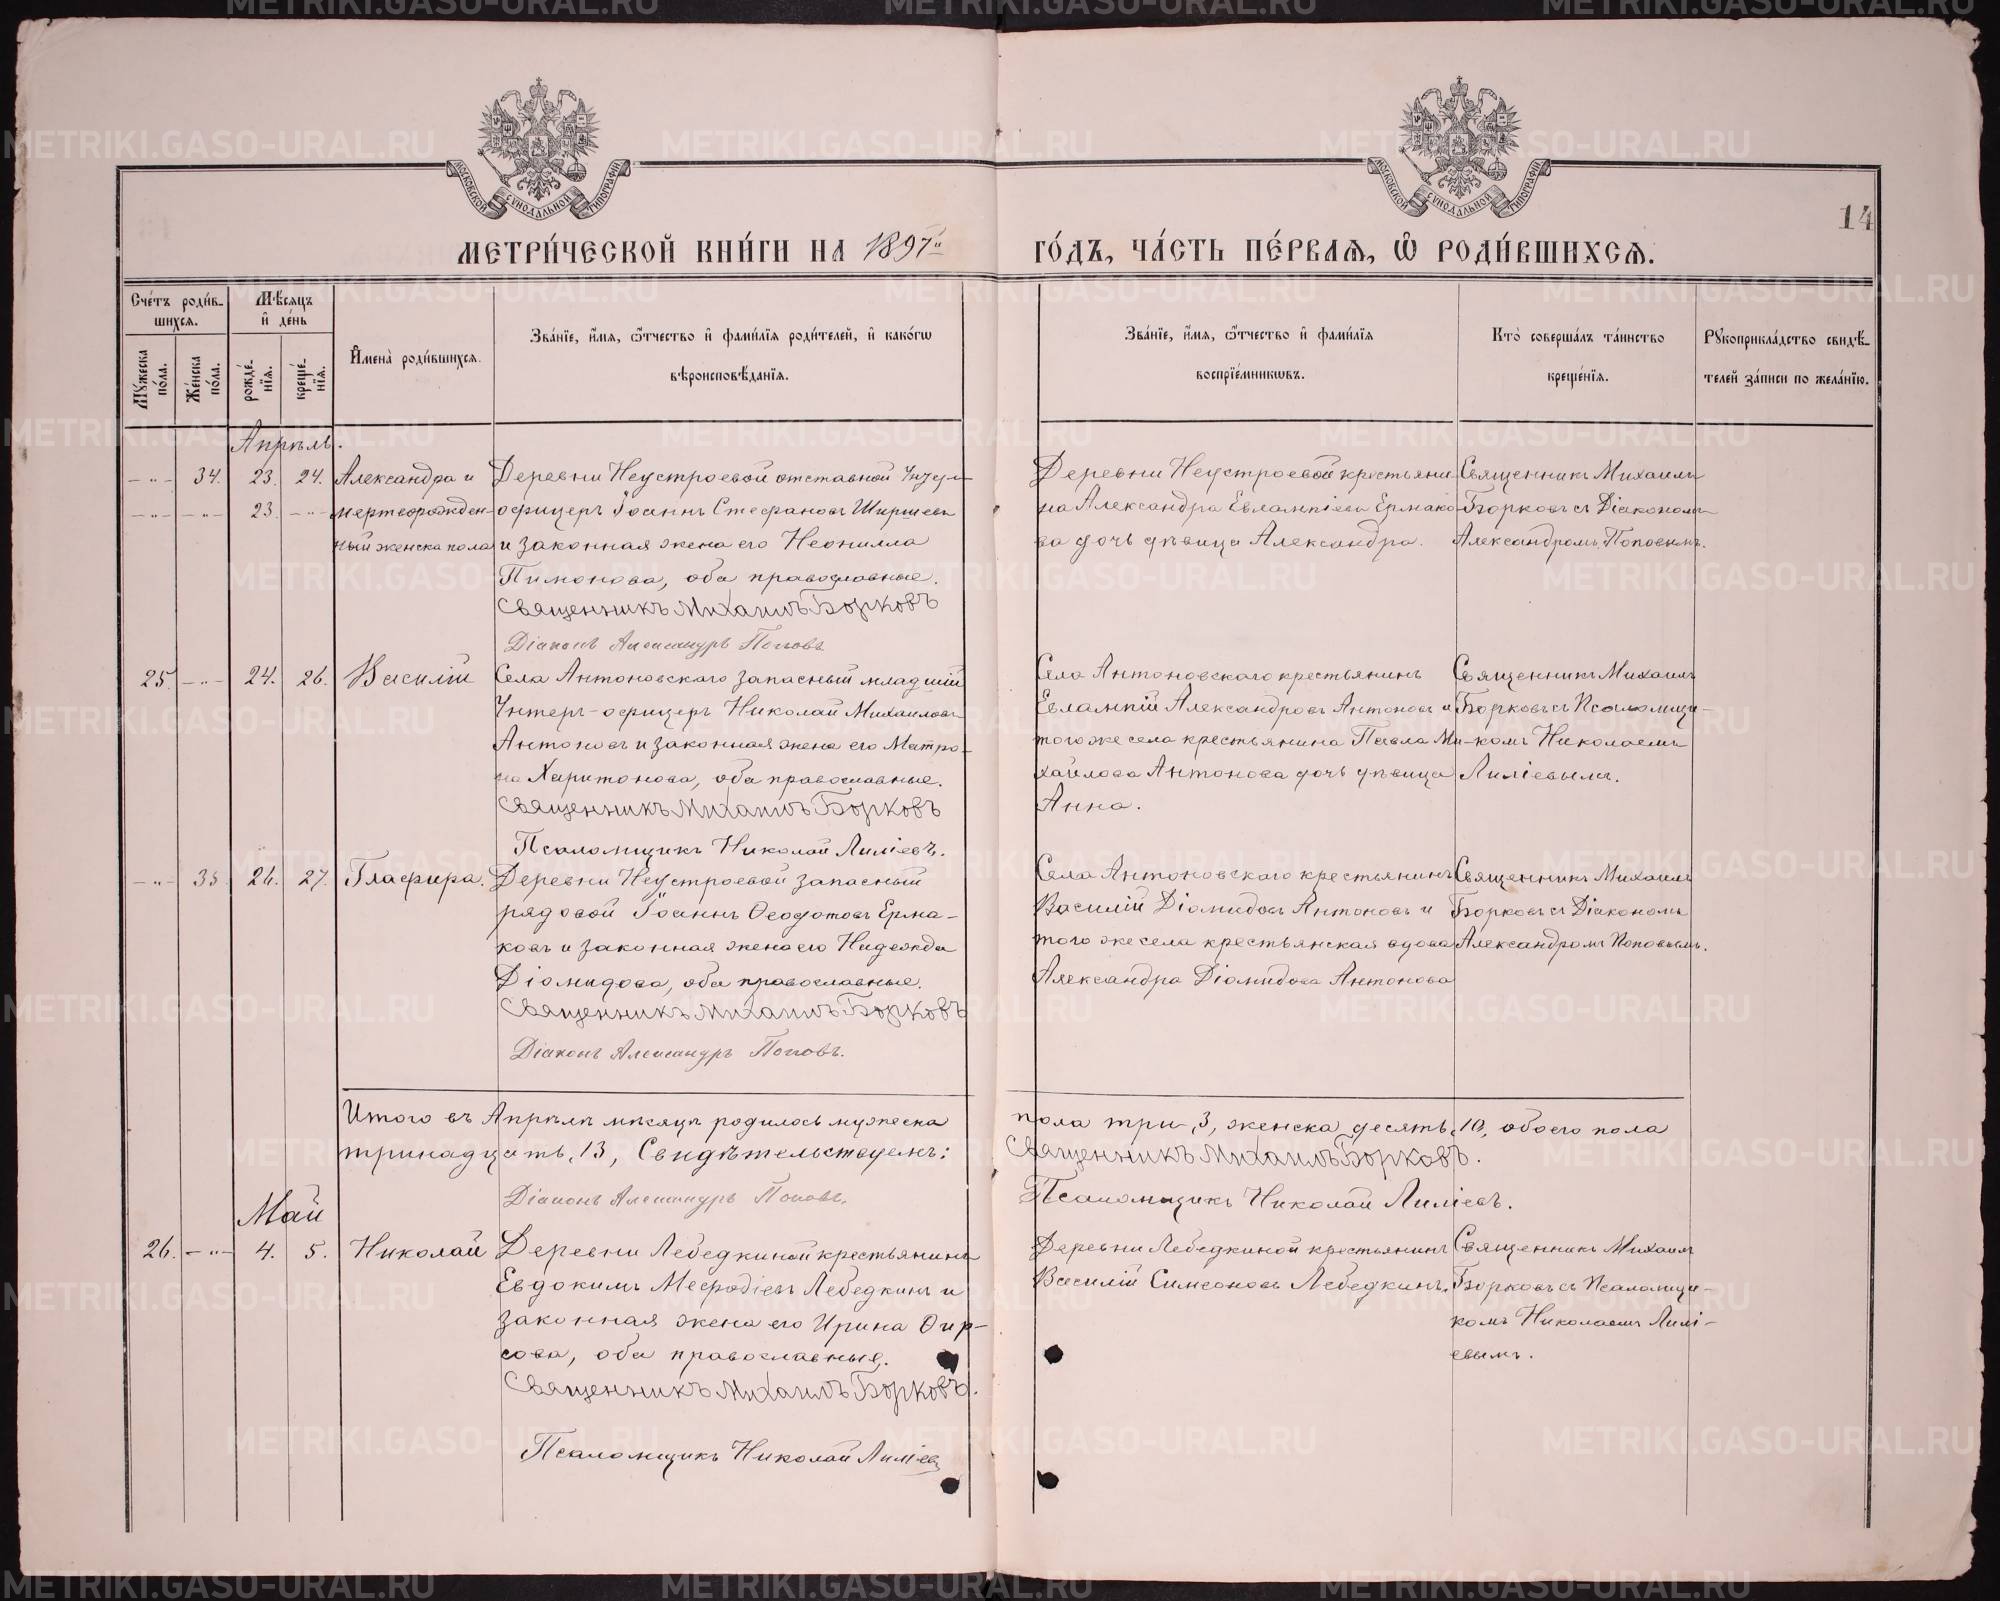 МЕТРИ́ЧЕСКОЙ КНИ́ГИ НА 1897й ГО́ДЪ, ЧА́СТЬ ПЕ́РВАѦ, Ѡ҆ РОДИ́ВШИХСѦ.
14
МОСКОВСКОЙ СУНОДАЛЬНОЙ ТИПОГРАФІИ
МОСКОВСКОЙ СУНОДАЛЬНОЙ ТИПОГРАФІИ
Сче́тъ роди́в-
шихсѧ.
Мꙋжеска по́ла.
Же́нска по́ла.
Мѣ́сѧцъ
и҆ де́нь
рожде́-
нїѧ.
креще́-
нїѧ.
И҆мена̀ роди́вшихсѧ.
Зва́нїе, и҆́мѧ, ѻ҆́тчество и҆ фами́лїѧ роди́телей, и҆ како́гѡ
вѣроисповѣ́данїѧ.
Зва́нїе, и҆́мѧ, ѻ҆́тчество и҆ фами́лїѧ
воспрїе́мникѡвъ.
Кто̀ соверша́лъ та́инство
креще́нїѧ.
Рꙋкоприкла́дство свидѣ́-
телей за́писи по жела́нїю.
Апрѣль.
-"- 34. 23. 24. Александра и
-"- -"- 23. -"- мертворожден
ный женска пола
Деревни Неустроевой отставной Унтер-
офицеръ Іоаннъ Стефановъ Ширшевъ
и законная жена его Неонилла
Пимонова, оба православные.
Священникъ Михаилъ Борковъ
Діаконъ Александръ Поповъ
Деревни Неустроевой крестьяни
на Александра Евлампіева Ермако-
ва дочь дѣвица Александра.
Священникъ Михаилъ
Борковъ съ Діакономъ
Александромъ Поповымъ.
25. -"- 24. 26. Василій
Села Антоновскаго запасный младшій
Унтеръ-офицеръ Николай Михаиловъ
Антоновъ и законная жена его Матро-
на Харитонова, оба православные.
Священникъ Михаилъ Борковъ
Псаломщикъ Николай Лиліевъ.
Села Антоновскаго крестьянинъ
Евлампій Александровъ Антоновъ и
того же села крестьянина Павла Ми-
хайлова Антонова дочь дѣвица
Анна.
Священникъ Михаилъ
Борковъ съ Псаломщи-
комъ Николаемъ
Лиліевымъ.
-"- 35. 26. 27. Глафира.
Деревни Неустроевой запасный
рядовой Іоаннъ Ѳеодотовъ Ерма-
ковъ и законная жена его Надежда
Діомидова, оба православные.
Священникъ Михаилъ Борковъ
Діаконъ Александръ Поповъ.
Села Антоновскаго крестьянинъ
Василій Діомидовъ Антоновъ и
того же села крестьянская вдова
Александра Діомидова Антонова
Священникъ Михаилъ
Борковъ съ Діакономъ
Александромъ Поповымъ.
Итого въ Апрѣлѣ мѣсяцѣ родилось мужеска пола три, 3, женска десять, 10, обоего пола
тринадцать, 13, Свидѣтельствуемъ: Священникъ Михаилъ Борковъ.
Діаконъ Александръ Поповъ. Псаломщикъ Николай Лиліевъ.
Май
26. -"- 4. 5. Николай
Деревни Лебедкиной крестьянинъ
Евдокимъ Меѳодіевъ Лебедкинъ и
законная жена его Ирина Ѳир-
сова, оба православные.
Священникъ Михаилъ Борковъ.
Псаломщикъ Николай Лиліевъ
Деревни Лебедкиной крестьянинъ
Василій Симеоновъ Лебедкинъ.
Священникъ Михаилъ
Борковъ съ Псаломщи-
комъ Николаемъ Лилі-
евымъ.
METRIKI.GASO-URAL.RU